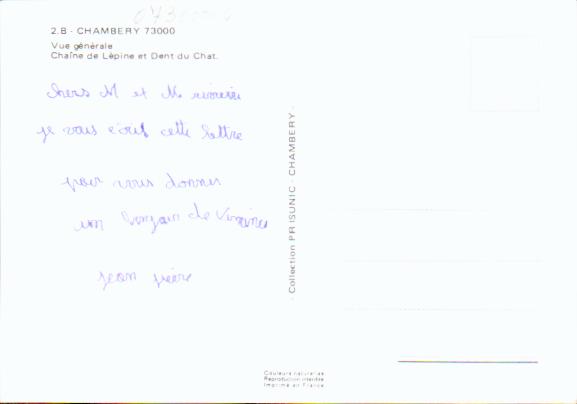 2.B - CHAMBERY 73000
Vue générale
Chaîne de Lépine et Dent du Chat.
chers M et M
je vous écris cette lettre
pour vous donner
un bonjour de
jean pierre
- Collection PRISUNIC - CHAMBERY -
Couleurs naturelles
Reproduction interdite
Imprimé en France